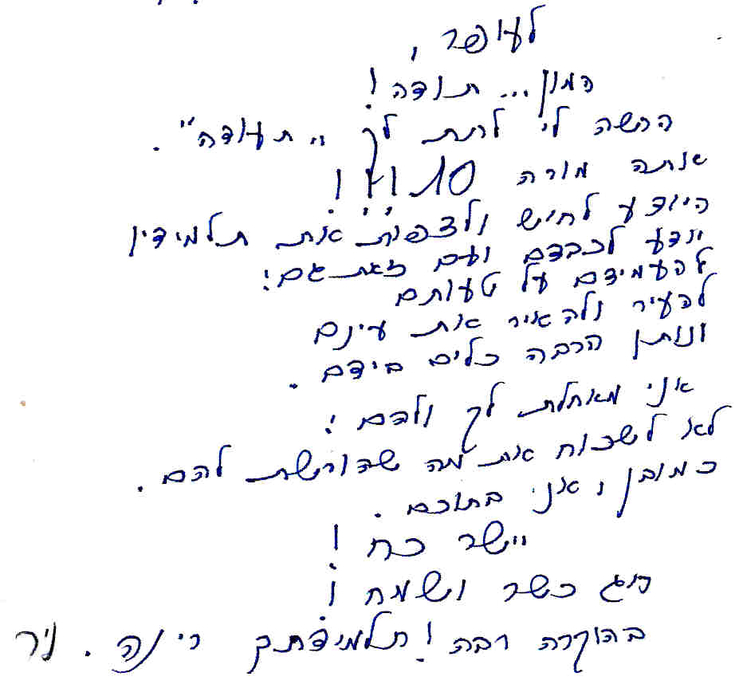 לעופר,
המון... תודה!
הרשה לי לתת לך "תעודה".
אתה מורה 10!
היודע לחיש ולצפות את תלמידיו
יודע לכבדם ועם זאת גם:
להעמידם על טעותם
להעיר ולהאיר את עינם
ונותן הרבה כלים בידם.
אני מאחלת לך ולהם:
לא לשכוח את מה שהורשת להם.
כמובן ואני בתוכם.
יישר כח!
חג כשר ושמח!
בהוקרה רבה! תלמידתך רינה. ניר